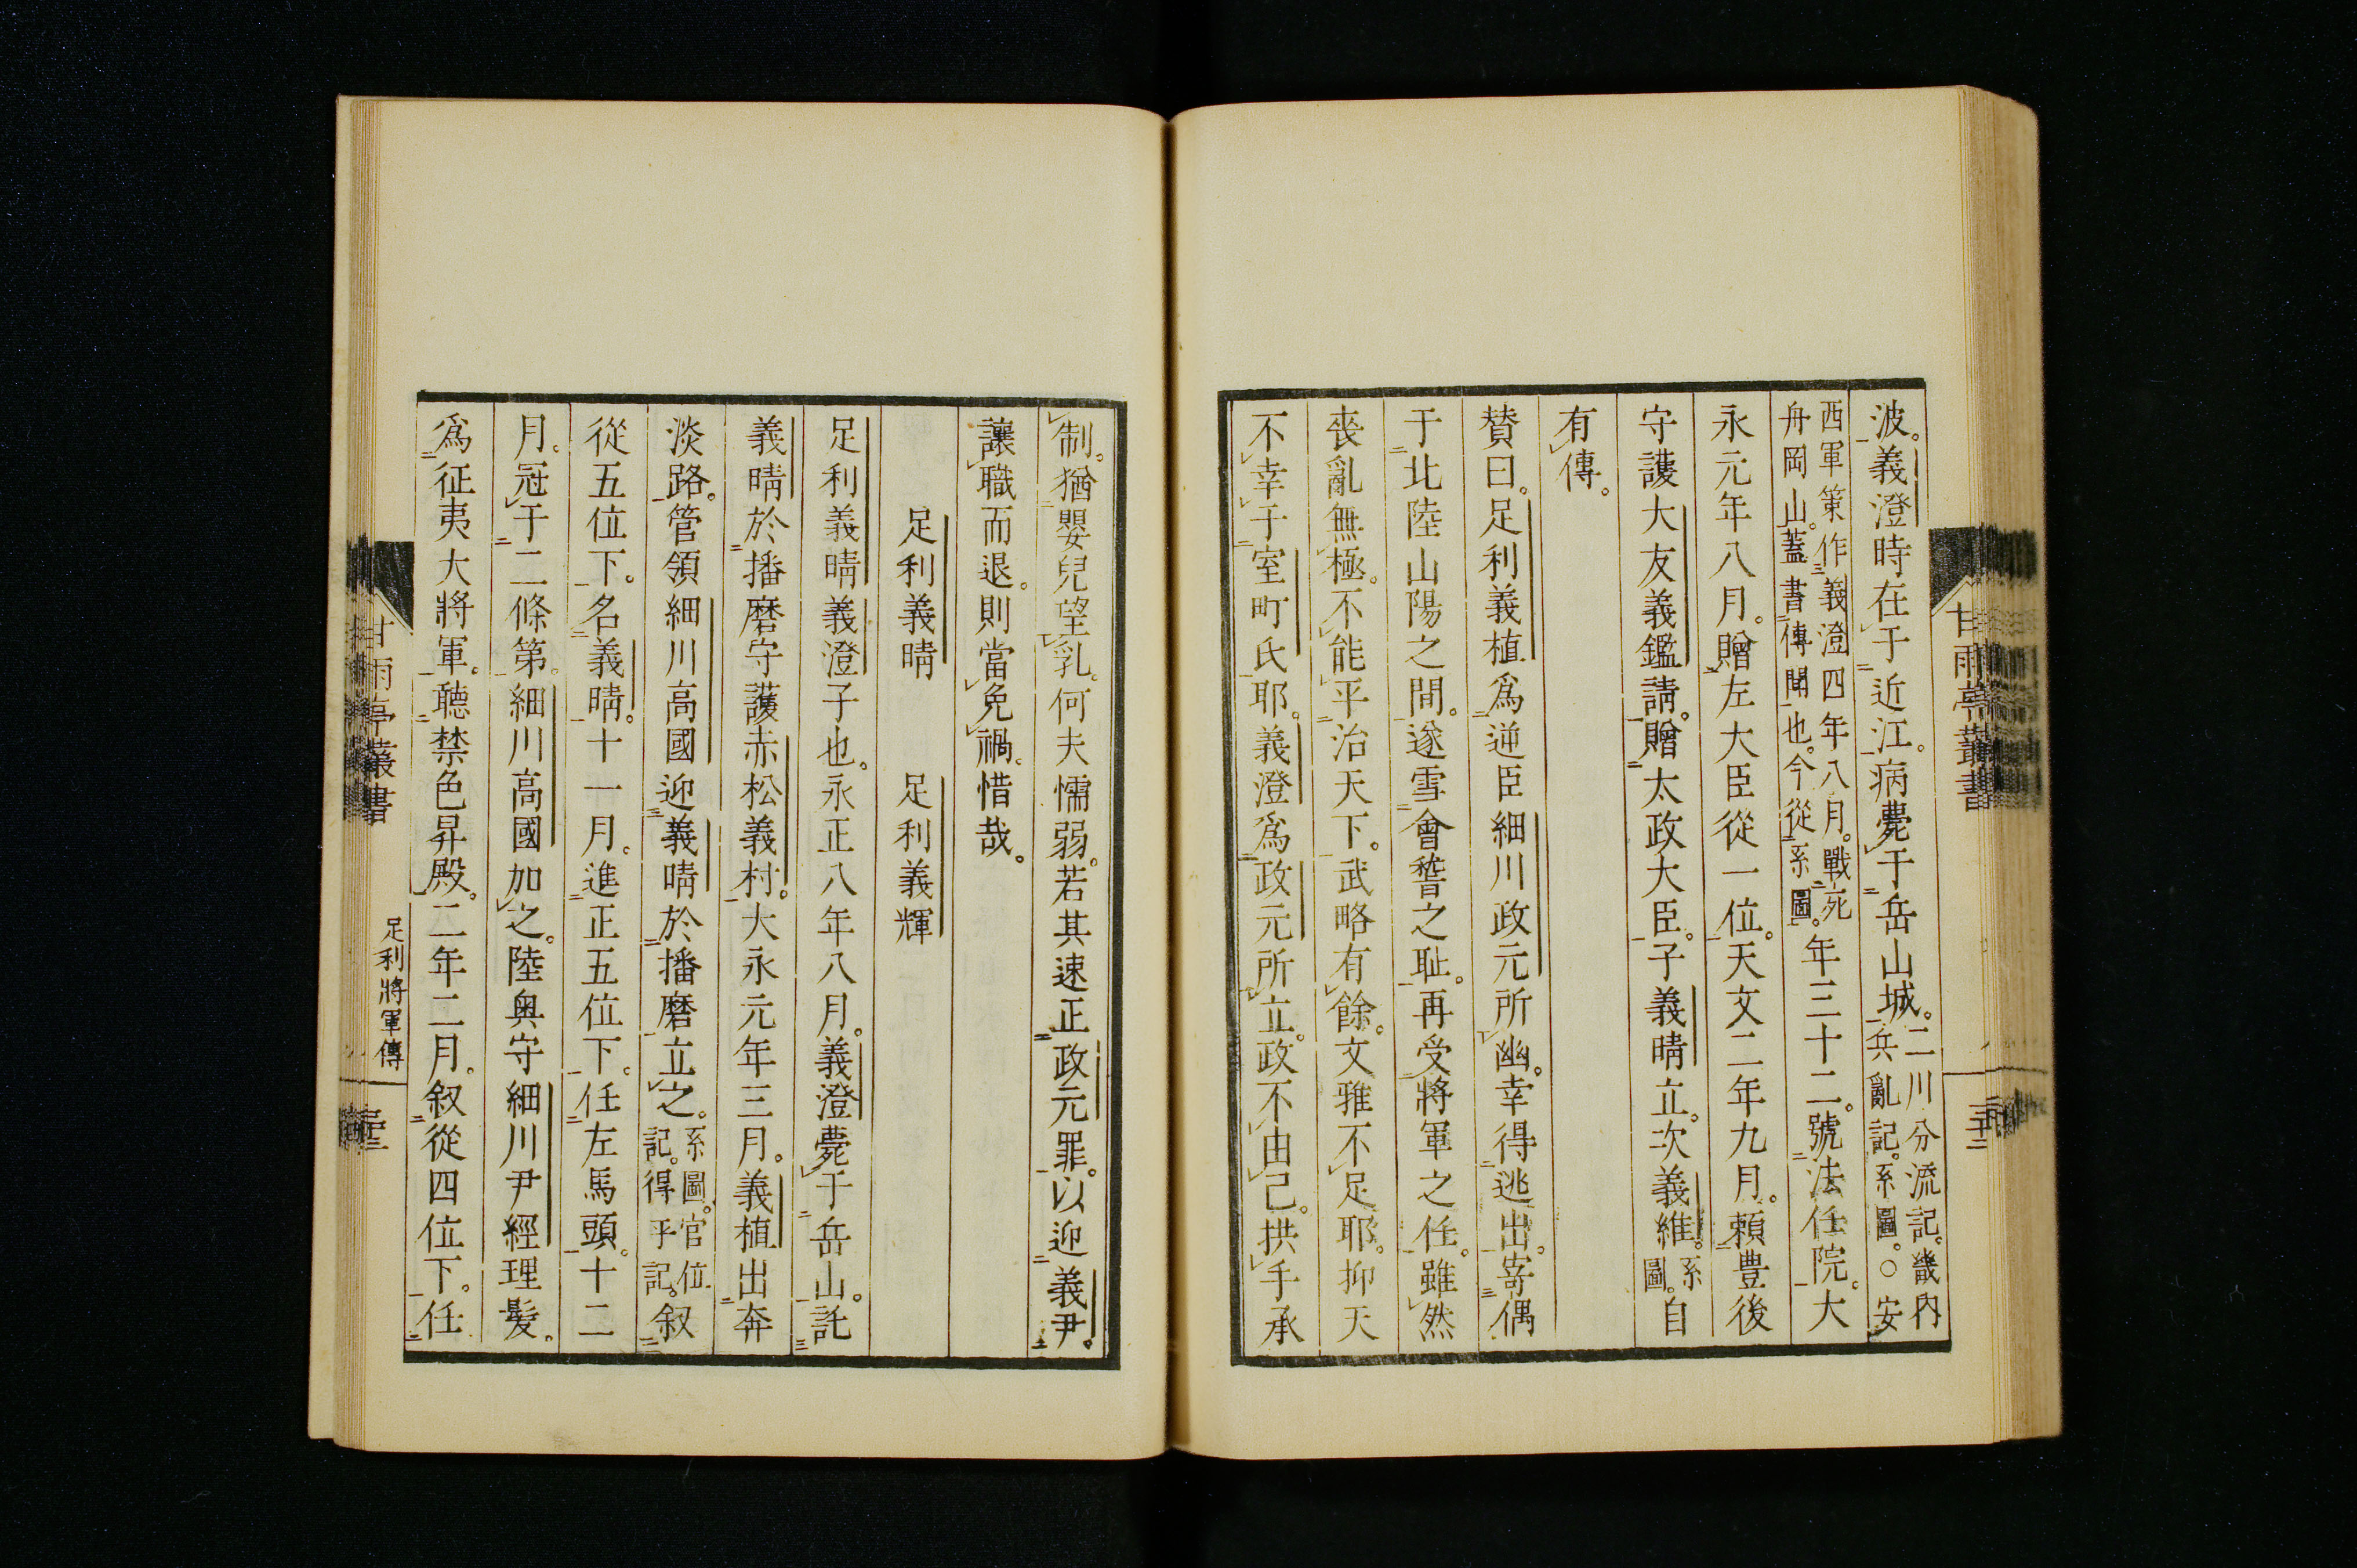 波。義澄時在于近江。病薨于岳山城。二川分流記。畿内
兵亂記。系圖。○安
西軍策作義澄四年八月。戰死
舟岡山。蓋書傳聞也。今從系圖。年三十二。號法任院。大
永元年八月。贈左大臣從一位。天文二年九月。賴豊後
守護大友義鑑請。贈太政大臣。子義晴立。次義維。系
圖。自
有傳。
賛曰。足利義植爲逆臣細川政元所幽。幸得逃出。寄偶
于北陸山陽之間。遂雪會稽之耻。再受將軍之任。雖然
喪亂無極。不能平治天下。武略有餘。文雅不足耶。抑天
不幸于室町氏耶。義澄爲政元所立。政不由己。拱手承
甘雨亭叢書
制。猶嬰兒望乳。何夫懦弱。若其速正政元罪。以迎義尹。
讓職而退。則當免禍。惜哉。
足利義晴　足利義輝
足利義晴義澄子也。永正八年八月。義澄薨于岳山。託
義晴於播磨守護赤松義村。大永元年三月。義植出奔
淡路。管領細川高國迎義晴於播磨立之。系圖。官位
記。得乎記。叙
從五位下。名義晴。十一月。進正五位下。任左馬頭。十二
月。冠于二條第。細川高國加之。陸奥守細川尹經理髪。
爲征夷大將軍。聽禁色昇殿。二年二月。叙從四位下。任
甘雨亭叢書
足利將軍傳